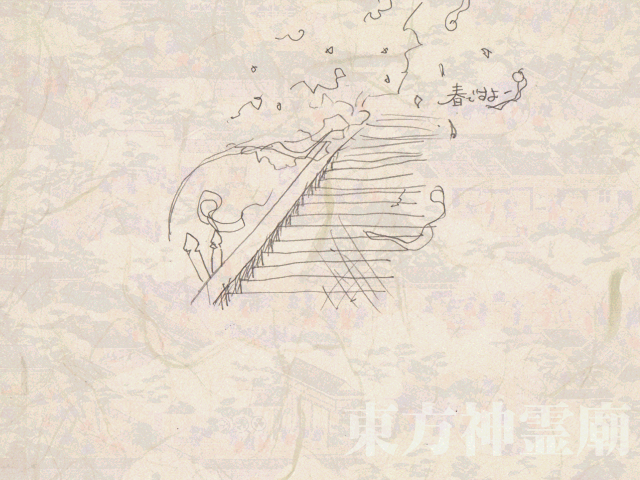 春ですよー
東方神霊廟